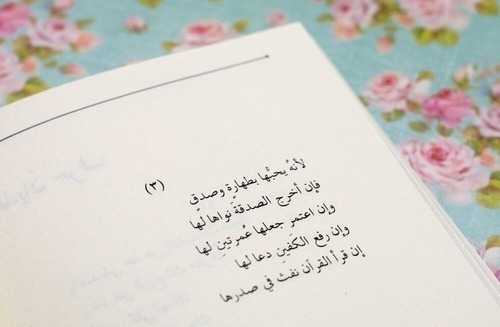 (٣)
لأنهُ يحبُّها بطهارةٍ وصدق
فإن أخرج الصدقةَ نواها لها
وإن اعتمر جعلها عُمرتينِ لها
وإن رفع الكَفينِ دعا لها
إن قرأ القرآن نفثَ في صدرها